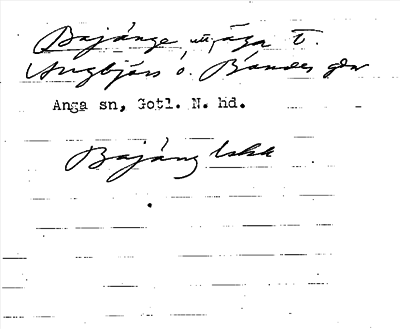 Bajänge, utäga t.
Angbjärs o. Bandes gdr
Anga sn, Gotl. N. hd.
Bajäng lskk